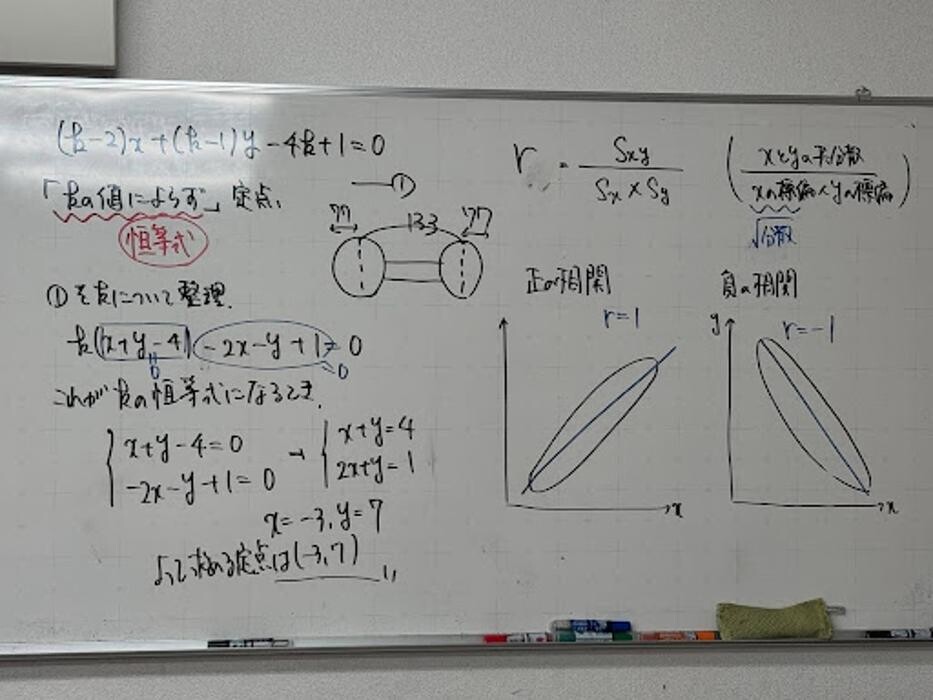 (k-2)x+(k-1)y-4k+1=0
①
「kの値によらず」定点、
恒等式
77 133 77
①をkについて整理.
k(x+y-4)-2x-y+1=0
0 0
これがkの恒等式になるとき、
x+y-4=0 → x+y=4
-2x-y+1=0 2x+y=1
x=-3, y=7
よって求める定点は(-3,7)
r = Sxy / Sx × Sy (xとyの共分散 / xの標偏×yの標偏)
√分散
正の相関
r=1
x
負の相関
y
r=-1
x